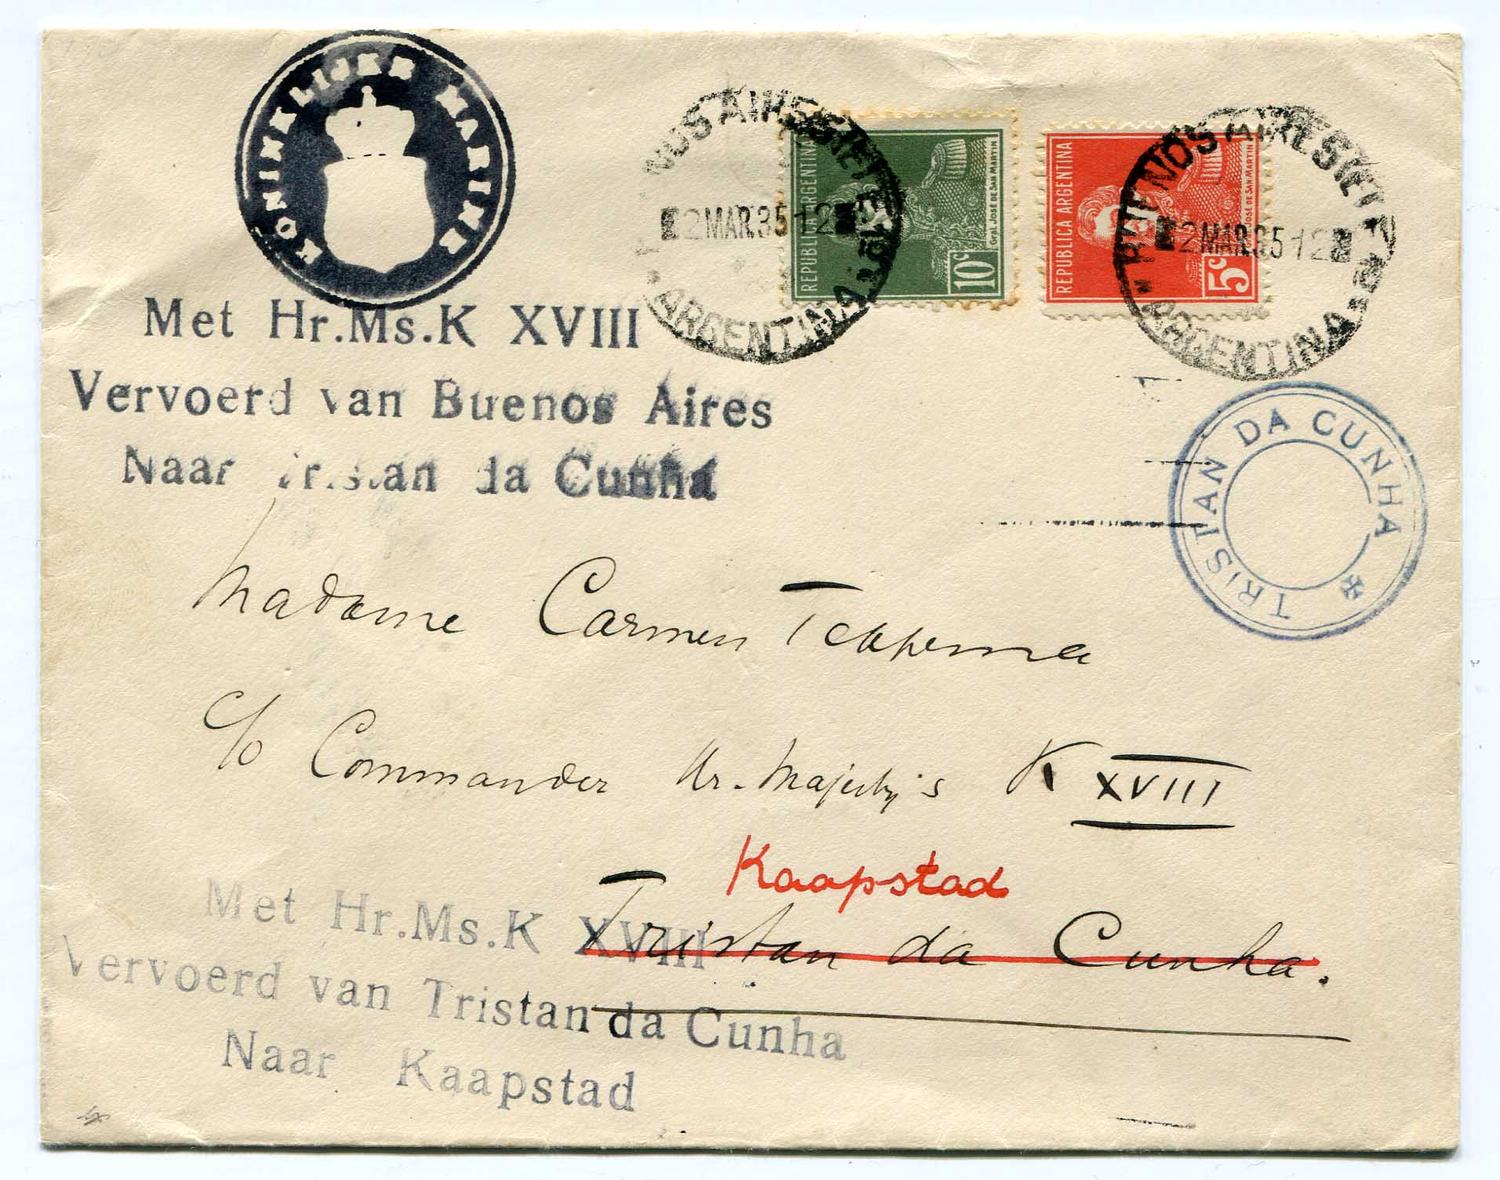 KONINKLIJKE MARINE
BUENOS AIRES
12 MAR.35 12
ARGENTINA
REPUBLICA ARGENTINA
Gral. JOSÉ DE SAN MARTIN
10c
BUENOS AIRES
12 MAR.35 12
ARGENTINA
REPUBLICA ARGENTINA
JOSÉ DE SAN MARTIN
5c
Met Hr.Ms.K XVIII
Vervoerd van Buenos Aires
Naar Tristan da Cunha
TRISTAN DA CUNHA
Madame Carmen
c/o Commander Hr. Majesty's K XVIII
Kaapstad
Tristan da Cunha.
Met Hr.Ms.K XVIII
Vervoerd van Tristan da Cunha
Naar Kaapstad